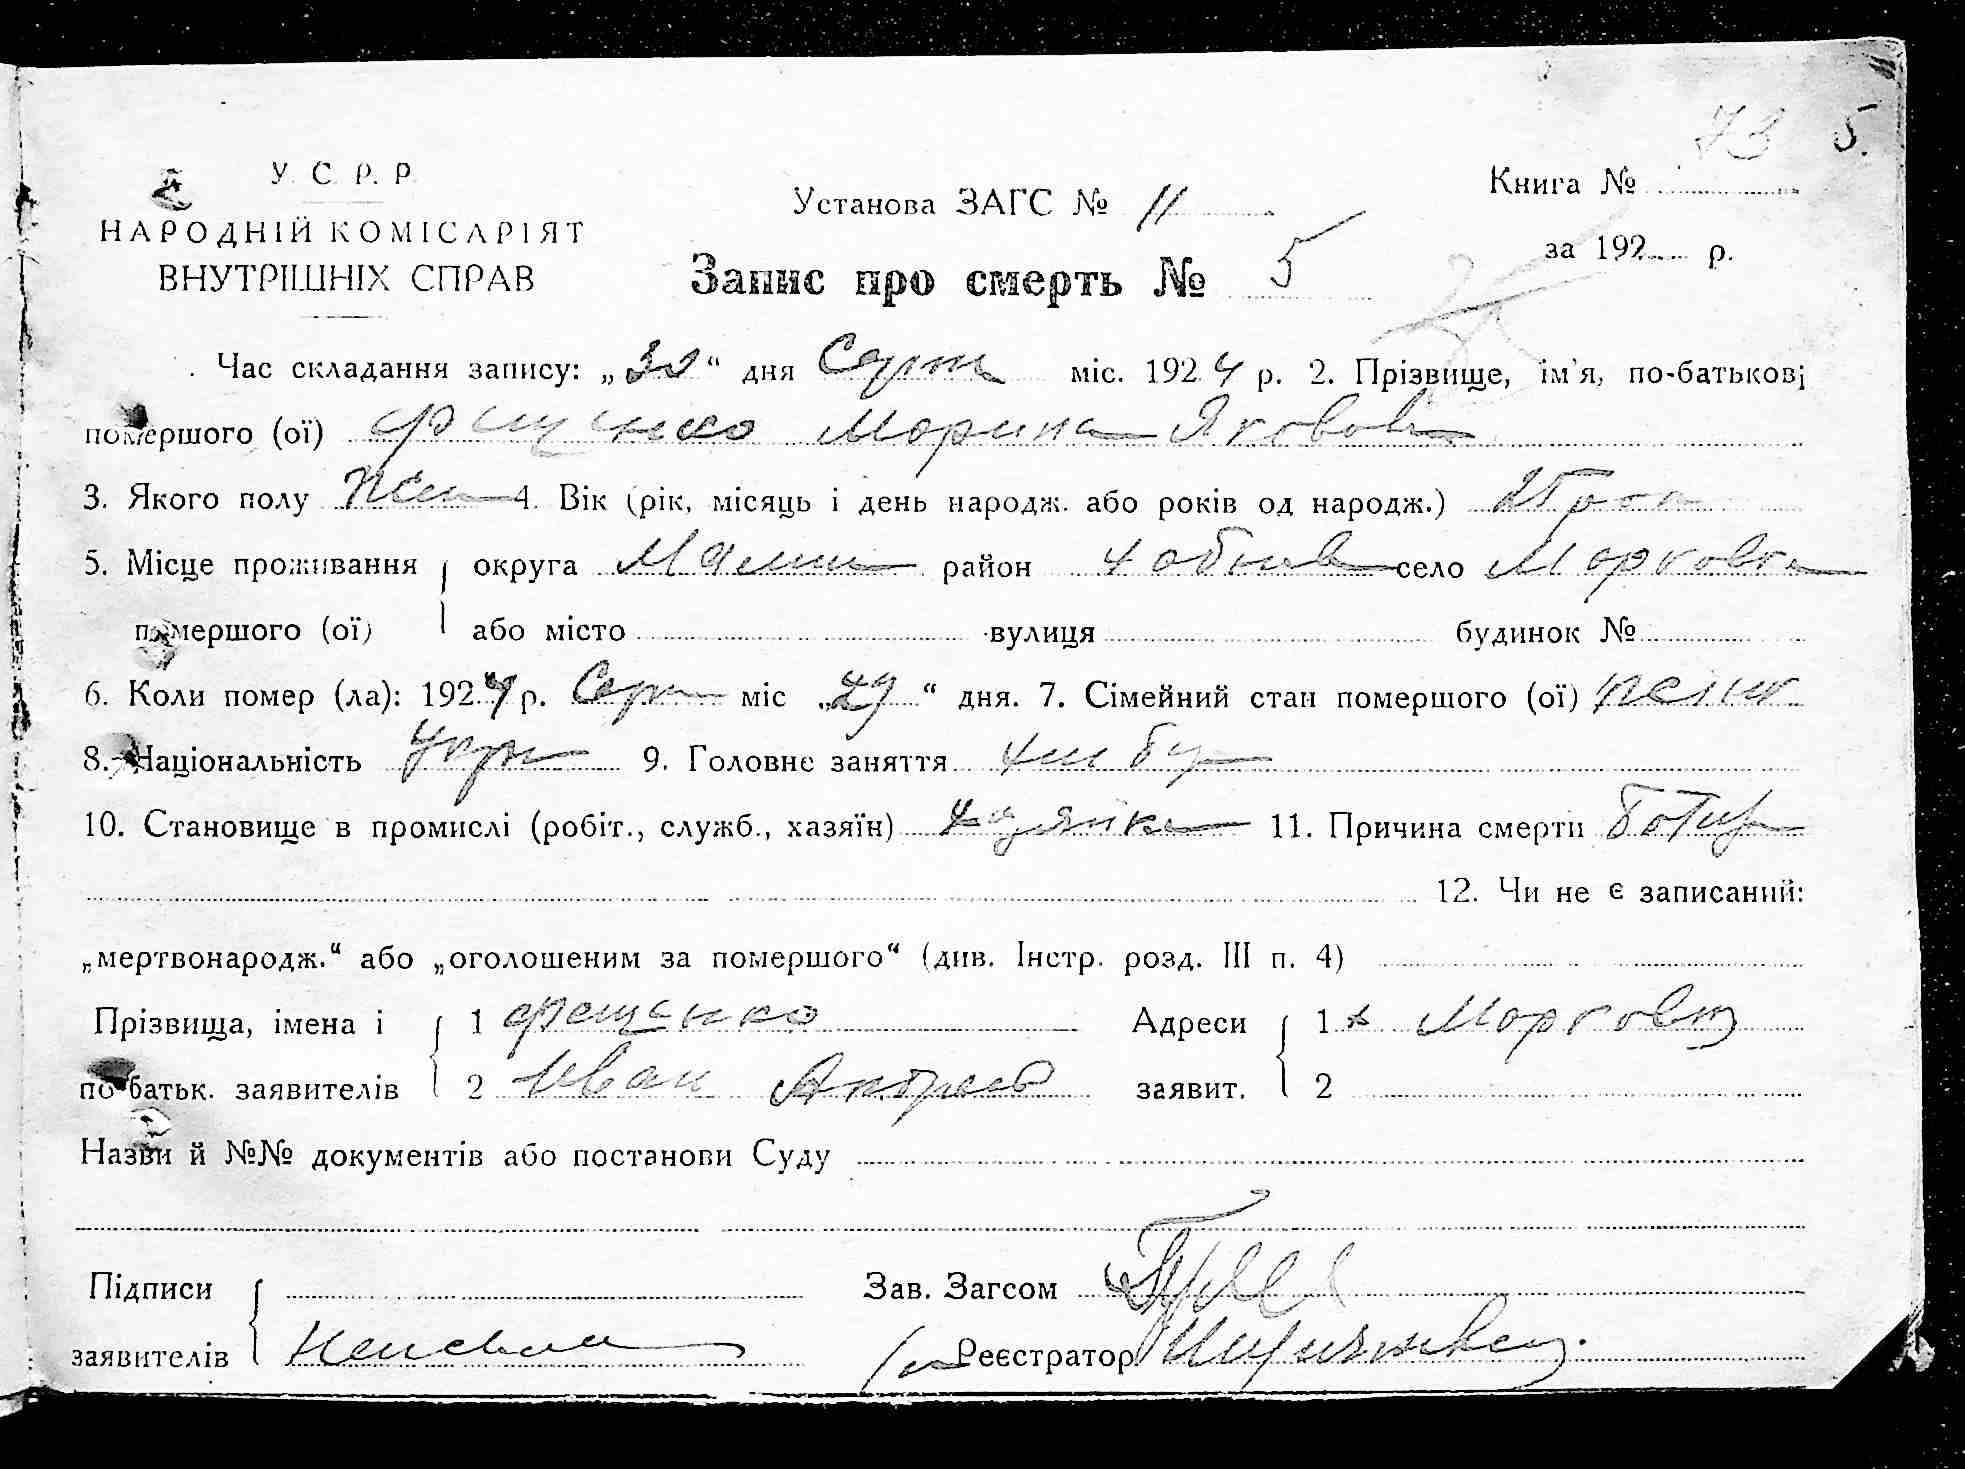 73 5.
У. С. Р. Р.
НАРОДНІЙ КОМІСАРІЯТ
ВНУТРІШНІХ СПРАВ
Установа ЗАГС № 11
Книга №
за 192 р.
Запис про смерть № 5
Час складання запису: „30“ дня Серп міс. 1924 р. 2. Прізвище, ім'я, по-батькові
помершого (ої) Фещенко Марина Яковов
3. Якого полу Жен 4. Вік (рік, місяць і день народж. або років од народж.)
5. Місце проживання округа район село Марковка
помершого (ої) або місто вулиця будинок №
6. Коли помер (ла): 1924 р. Серп міс „29“ дня. 7. Сімейний стан помершого (ої)
8. Національність Укра 9. Головне заняття
10. Становище в промислі (робіт., служб., хазяїн) хазяйка 11. Причина смерти
12. Чи не є записаний:
„мертвонародж.“ або „оголошеним за помершого“ (див. Інстр. розд. III п. 4)
Прізвища, імена і 1 Фещенко Адреси 1 х Марковц
по батьк. заявителів 2 Иван Андреев заявит. 2
Назви й №№ документів або постанови Суду
Підписи Зав. Загсом
заявителів Реєстратор